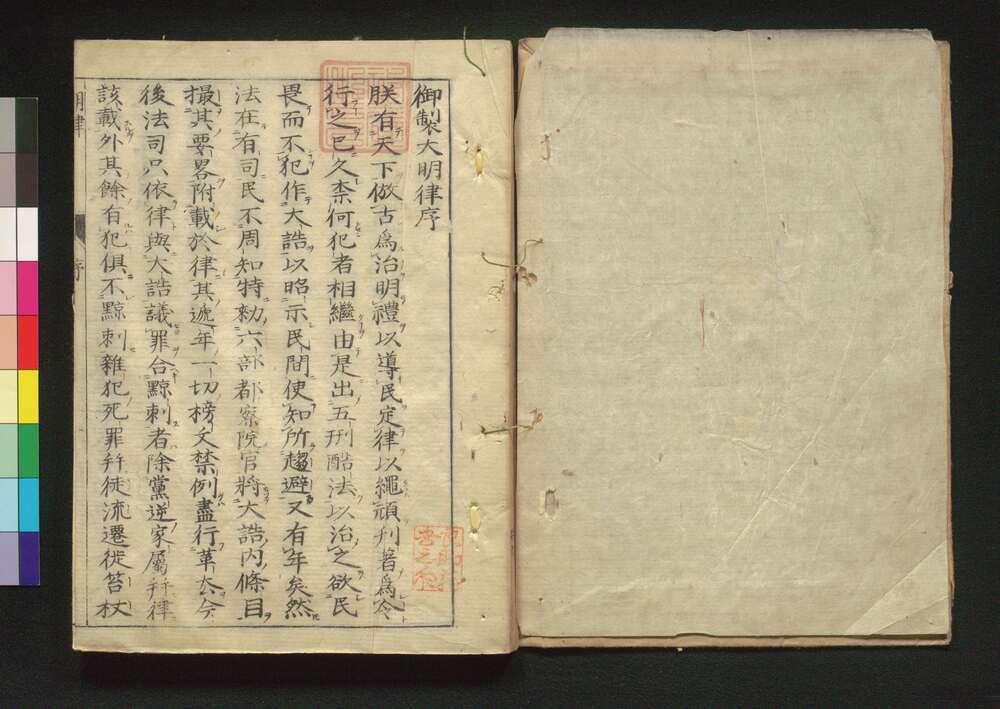 御製大明律序
朕有天下倣古爲治明禮以導民定律以繩頑刋著爲令
行之巳久柰何犯者相繼由是出五刑酷法以治之欲民
畏而不犯作大誥以昭示民間使知所趨避又有年矣然
法在有司民不周知特勑六部都察院官將大誥内條目
撮其要畧附載於律其遞年一切榜文禁例盡行革去今
後法司只依律與大誥議罪合黥刺者除黨逆家屬幷律
該載外其餘有犯俱不黥刺雜犯死罪幷徒流遷徙笞杖
明律
序